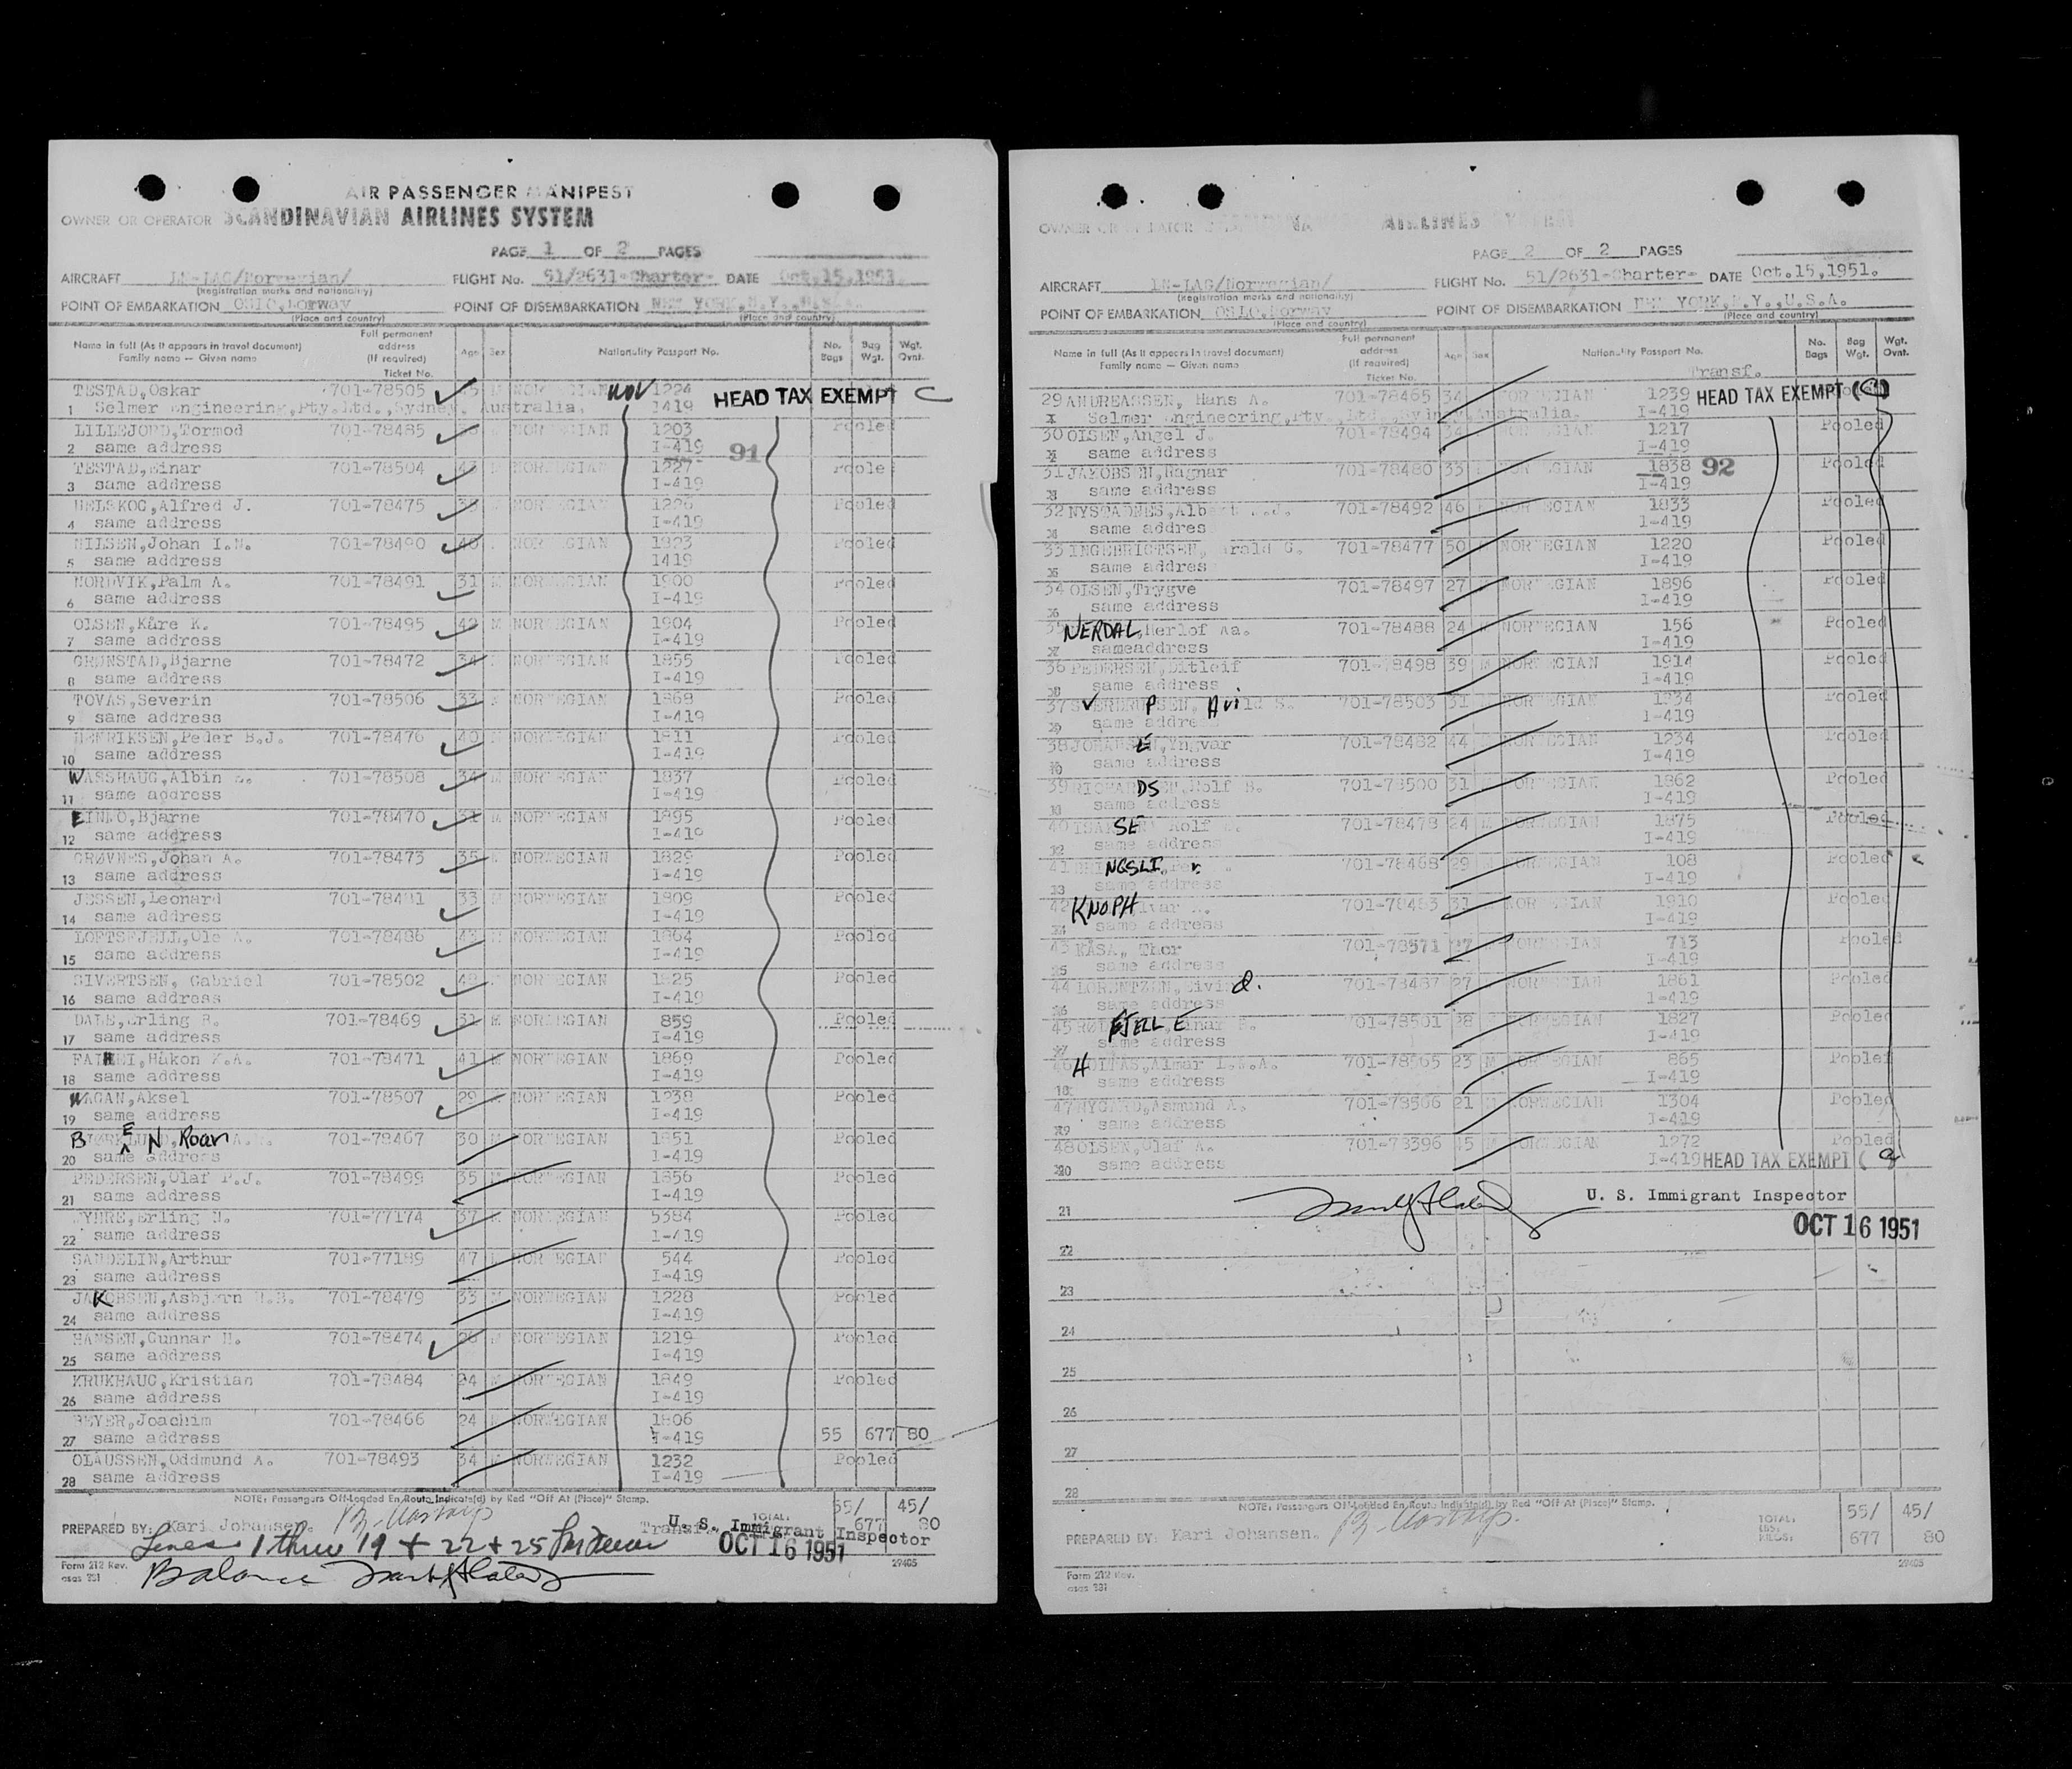 AIR PASSENGER MANIFEST
OWNER OR OPERATOR SCANDINAVIAN AIRLINES SYSTEM
PAGE 1 OF 2 PAGES
AIRCRAFT LN-LAG/Norwegian/ FLIGHT No. 51/2631-Charter- DATE Oct.15,1951.
(Registration marks and nationality)
POINT OF EMBARKATION OSLO,Norway POINT OF DISEMBARKATION NEW YORK,N.Y.,U.S.A.
(Place and country) (Place and country)
Name in full (As it appears in travel document) Full permanent address (If required) Age Sex Nationality Passport No. No. Bags Bag Wgt. Wgt. Ovnt.
Family name — Given name Ticket No.
TESTAD,Oskar 701-78505 NOR 1224 HEAD TAX EXEMPT C
1 Selmer Engineering,Pty.Ltd.,Sydney, Australia. 1419
LILLEJORD,Tormod 701-78485 NORWEGIAN 1203 Pooled
2 same address I-419 91
TESTAD,Einar 701-78504 M NORWEGIAN 1227 Pooled
3 same address I-419
HELSKOG,Alfred J. 701-78475 NORWEGIAN 1226 Pooled
4 same address I-419
NILSEN,Johan I.M. 701-78490 NORWEGIAN 1823 Pooled
5 same address 1419
NORDVIK,Palm A. 701-78491 31 M NORWEGIAN 1900 Pooled
6 same address I-419
OLSEN,Kåre K. 701-78495 42 M NORWEGIAN 1904 Pooled
7 same address I-419
GRØNSTAD,Bjarne 701-78472 34 NORWEGIAN 1855 Pooled
8 same address I-419
TOVAS,Severin 701-78506 33 NORWEGIAN 1868 Pooled
9 same address I-419
HENRIKSEN,Peder B.J. 701-78476 40 NORWEGIAN 1811 Pooled
10 same address I-419
WASSHAUG,Albin 701-78508 34 M NORWEGIAN 1837 Pooled
11 same address I-419
EINMO,Bjarne 701-78470 31 M NORWEGIAN 1895 Pooled
12 same address I-419
GRØVNES,Johan A. 701-78473 35 NORWEGIAN 1829 Pooled
13 same address I-419
JESSEN,Leonard 701-78481 33 M NORWEGIAN 1809 Pooled
14 same address I-419
LOFTSFJELL,Ole A. 701-78486 M NORWEGIAN 1864 Pooled
15 same address I-419
SIVERTSEN, Gabriel 701-78502 NORWEGIAN 1825 Pooled
16 same address I-419
DALE,Erling R. 701-78469 31 M NORWEGIAN 859 Pooled
17 same address I-419
FATHEI,Håkon K.A. 701-78471 41 M NORWEGIAN 1869 Pooled
18 same address I-419
WAGAN,Aksel 701-78507 29 NORWEGIAN 1238 Pooled
19 same address I-419
B E N, Roar 701-78467 30 M NORWEGIAN 1851 Pooled
20 same address I-419
PEDERSEN,Olaf P.J. 701-78499 35 NORWEGIAN 1856 Pooled
21 same address I-419
MYHRE,Erling N. 701-77174 37 M NORWEGIAN 5384 Pooled
22 same address I-419
SANDELIN,Arthur 701-77189 47 NORWEGIAN 544 Pooled
23 same address I-419
JAKOBSEN,Asbjørn H.B. 701-78479 33 M NORWEGIAN 1228 Pooled
24 same address I-419
HANSEN,Gunnar H. 701-78474 26 NORWEGIAN 1219 Pooled
25 same address I-419
KRUKHAUG,Kristian 701-78484 24 M NORWEGIAN 1849 Pooled
26 same address I-419
BEYER,Joachim 701-78466 24 NORWEGIAN 1806
27 same address I-419 55 677 80
OLAUSSEN,Oddmund A. 701-78493 34 NORWEGIAN 1232 Pooled
28 same address I-419
NOTE: Passengers Off-Loaded En Route Indicate(d) by Red "Off At (Place)" Stamp. 55/ 45/
PREPARED BY: Kari Johansen. TOTAL: 677 80
U. S. Immigrant Inspector
Lines 1 thru 19 + 22 + 25 OCT 16 1951
Form 212 Rev. Balance 29405
PAGE 2 OF 2 PAGES
OWNER OR OPERATOR SCANDINAVIAN AIRLINES SYSTEM
AIRCRAFT LN-LAG/Norwegian/ FLIGHT No. 51/2631-Charter- DATE Oct.15,1951.
(Registration marks and nationality)
POINT OF EMBARKATION OSLO,Norway POINT OF DISEMBARKATION NEW YORK,N.Y.,U.S.A.
(Place and country) (Place and country)
Name in full (As it appears in travel document) Full permanent address (If required) Age Sex Nationality Passport No. No. Bags Bag Wgt. Wgt. Ovnt.
Family name — Given name Ticket No. Transf.
29 ANDREASSEN, Hans A. 701-78465 34 1239 HEAD TAX EXEMPT
Selmer Engineering,Pty. Ltd.,Sydney,Australia. I-419
30 OLSEN,Angel J. 701-78494 34 NORWEGIAN 1217 Pooled
same address I-419
31 JAKOBSEN,Ragnar 701-78480 33 NORWEGIAN 1838 92 Pooled
same address I-419
32 NYSTADNES,Albert 701-78492 46 NORWEGIAN 1833 Pooled
same addres I-419
33 INGEBRIGTSEN, Harald G. 701-78477 50 NORWEGIAN 1220 Pooled
same addres I-419
34 OLSEN,Trygve 701-78497 27 NORWEGIAN 1896 Pooled
same address I-419
NERDAL,Herlof Aa. 701-78488 24 NORWEGIAN 156 Pooled
sameaddress I-419
36 PEDERSEN,Ditleif 701-78498 39 M NORWEGIAN 1914 Pooled
same address I-419
37 SVERDRUPSEN, Avild S. 701-78503 31 NORWEGIAN 1234 Pooled
same address I-419
38 JOHANSEN,Yngvar 701-78482 44 NORWEGIAN 1234 Pooled
same address I-419
39 RICHARDSEN,Rolf B. 701-78500 31 NORWEGIAN 1862 Pooled
same address I-419
40 ISAKSEN, Rolf 701-78478 24 M NORWEGIAN 1875 Pooled
same address I-419
41 NGSLI, Per 701-78468 29 NORWEGIAN 108 Pooled
same address I-419
42 KNOPH, Ivar 701-78483 31 NORWEGIAN 1910 Pooled
same address I-419
43 KÅSA, Thor 701-78571 27 NORWEGIAN 713 Pooled
same address I-419
44 LORENTZEN,Eivind. 701-78487 27 NORWEGIAN 1861 Pooled
same address I-419
45 RØDFJELL E 701-78501 38 NORWEGIAN 1827 Pooled
same address I-419
46 701-78565 23 M NORWEGIAN 865 Pooled
same address I-419
47 NYGÅRD,Asmund A. 701-78566 21 NORWEGIAN 1304 Pooled
same address I-419
48 OLSEN,Olaf A. 701-78396 45 M NORWEGIAN 1272 Pooled
same address I-419 HEAD TAX EXEMPT
21 U. S. Immigrant Inspector
OCT 16 1951
22
23
24
25
26
27
28
NOTE: Passengers Off-Loaded En Route Indicate(d) by Red "Off At (Place)" Stamp. 55/ 45/
PREPARED BY: Kari Johansen. TOTAL: 677 80
Form 212 Rev. 29405